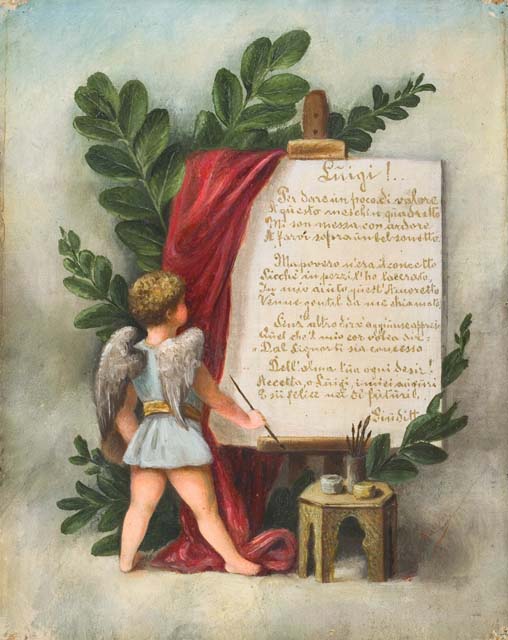 Luigi!..
Per dare un poco di valore
A questo meschin quadretto
Mi son messa con ardore
A farvi sopra un bel sonetto.
Ma povero n'era il concetto
Sicchè in pezzi l'ho lacerato,
In mio aiuto quest'Amoretto
Venne gentil da me chiamato
Senz'altro dire aggiunse
Quel che'l mio cor volea dir
Dal Signor ti sia concesso
Dell'alma tua ogni desir!
Accetta, o Luigi, i miei auguri
E sii felice nei dì futuri.
Giuditt